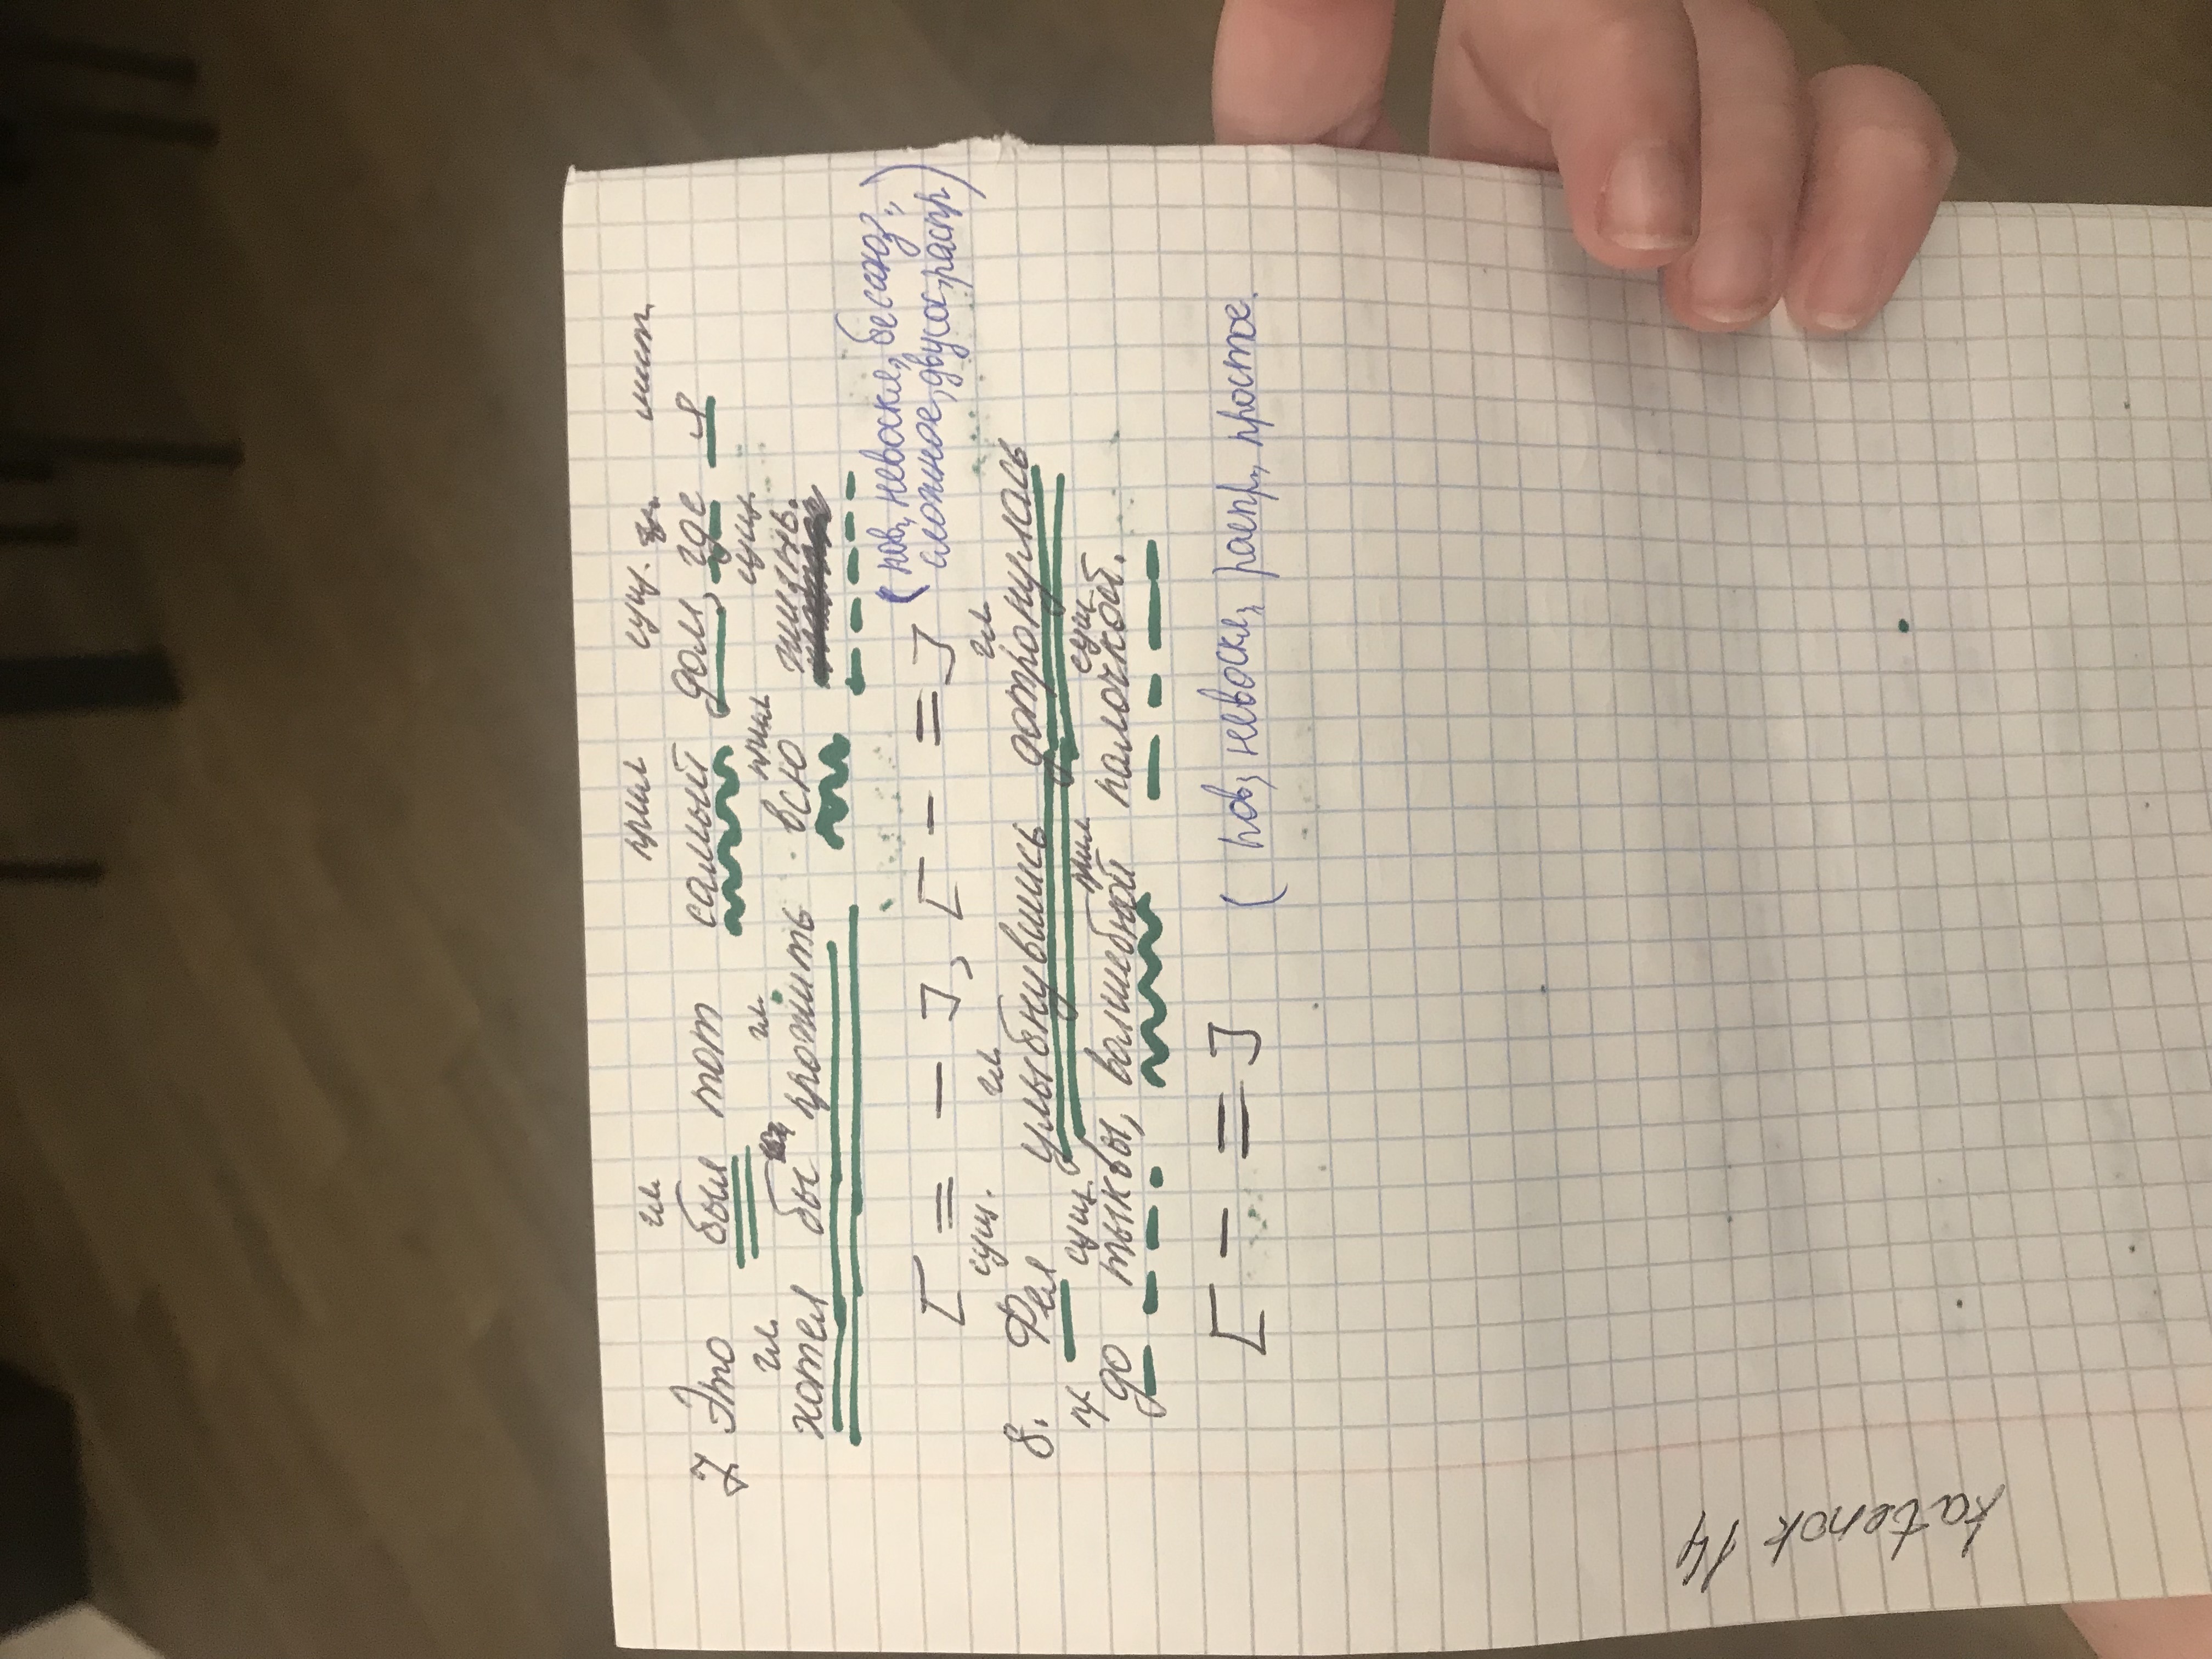 гл. прил сущ. гл. мест.
7 Это был тот самый дом, где я
гл. гл. прил сущ.
хотел бы прожить всю жизнь.
[ = - ], [ - = ] (пов, невоскл, бессоюз.,
сложное, двусос, распр)
сущ. гл. гл.
8. Фея улыбнувшись дотронулась
пр сущ. прил сущ
до тыквы, волшебной палочкой.
[ - = ] ( пов, невоскл, распр., простое.
katenok 14